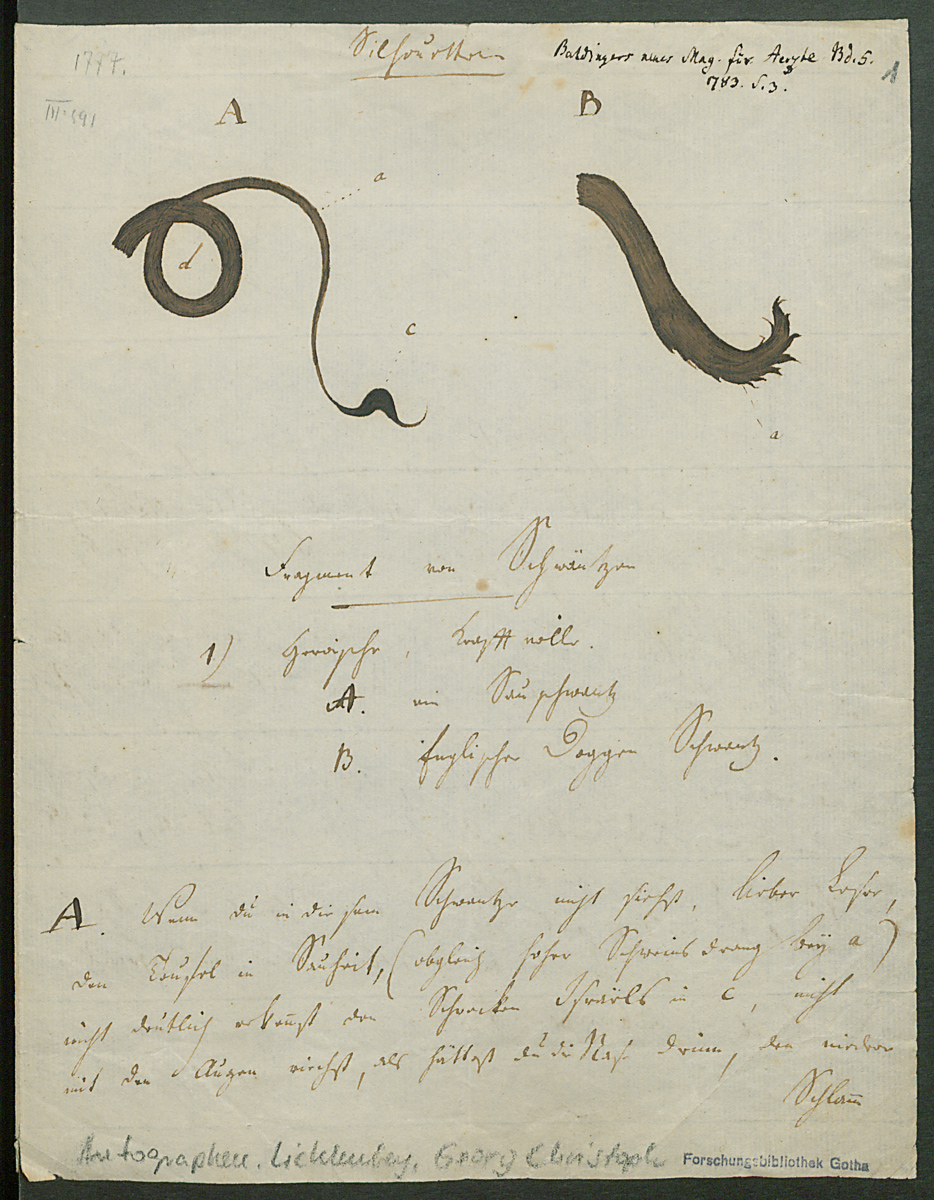 1777.
Silhouetten
Baldingers neues Mag. für Aerzte Bd. 5.
783. S. 3.
1
III. 591
A
B
a
d
c
a
Fragment von Schwänzen
1) Heroische, Krafftvolle.
A. ein Sauschwantz
B. Englischer Doggen Schwantz.
A. Wenn du in diesem Schwantze nicht siehst, lieber Leser,
den Teufel in Sauheit, (obgleich hoher Schweins drang bey a)
nicht deutlich erkennst den Schrecken Israëls in c, nicht
mit den Augen riechst, als hättest du die Nase drinn, den niedern
Schlam̄
Autographen. Lichtenberg, Georg Christoph
Forschungsbibliothek Gotha